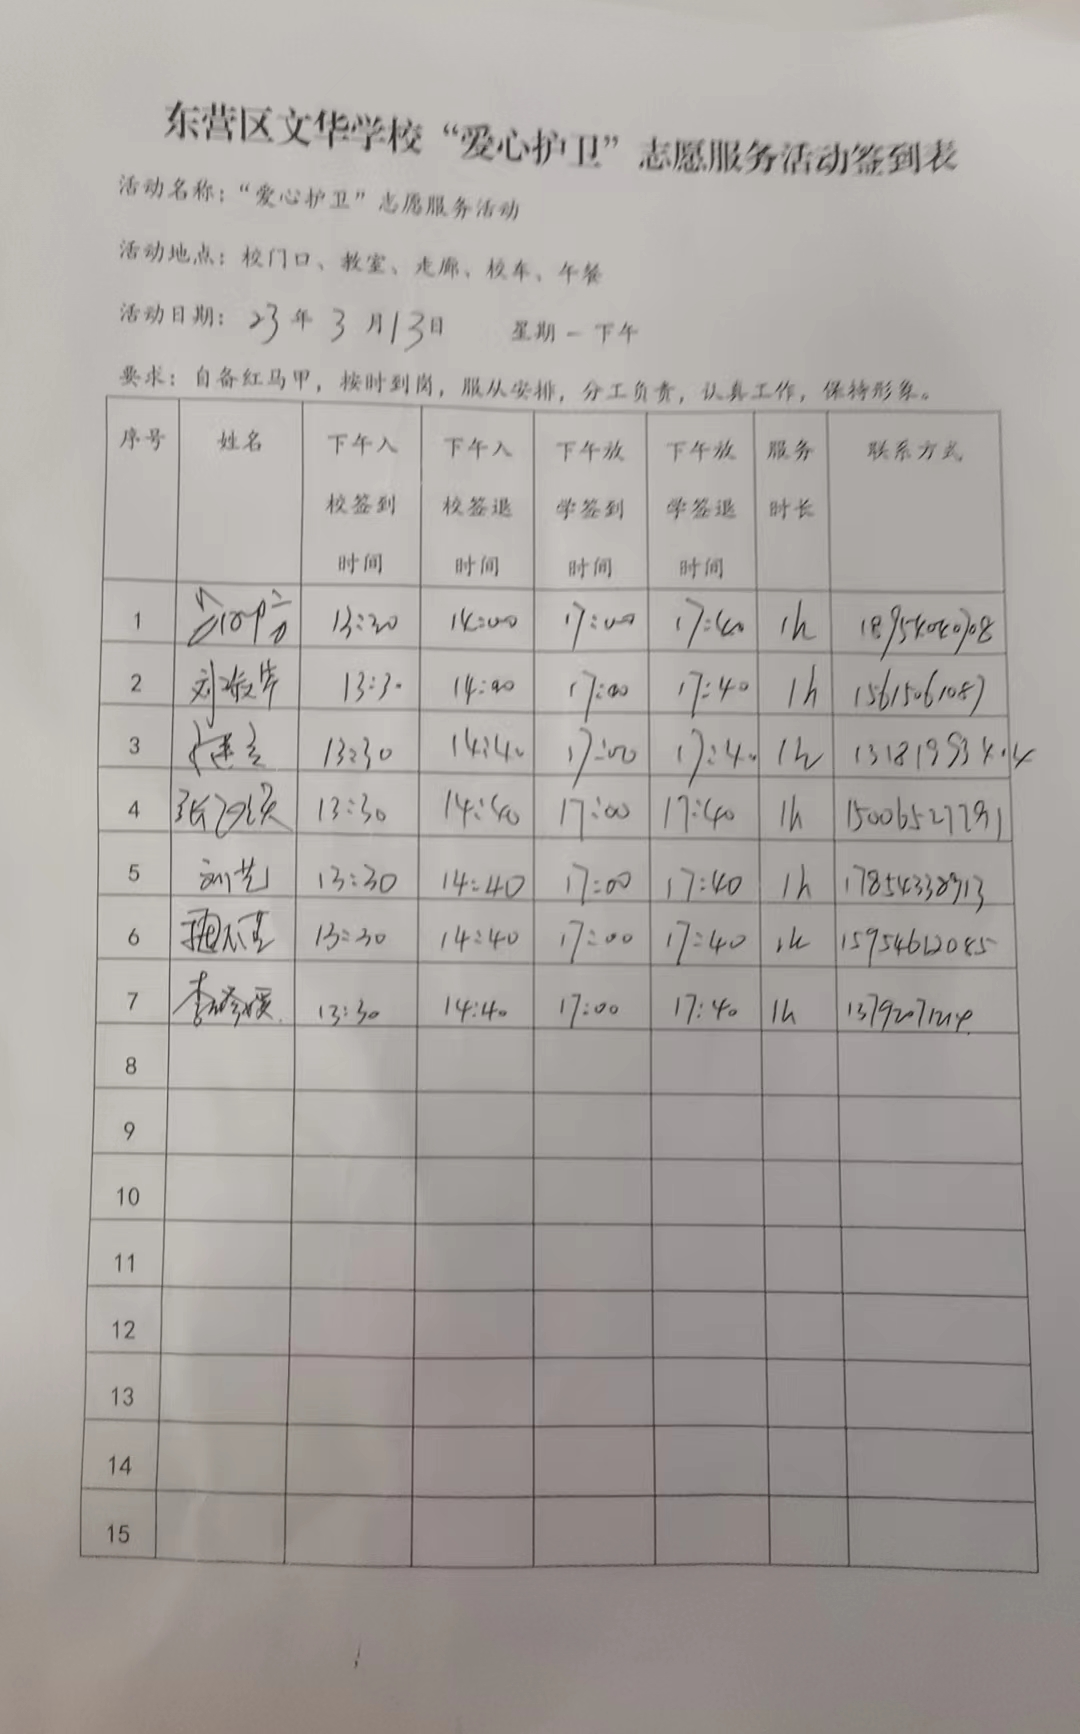 东营区文华学校“爱心护卫”志愿服务活动签到表
活动名称：“爱心护卫”志愿服务活动
活动地点：校门口、教室、走廊、校车、午餐
活动日期：23年3月13日 星期一下午
要求：自备红马甲，按时到岗，服从安排，分工负责，认真工作，保持形象。
序号 姓名 下午入校签到时间 下午入校签退时间 下午放学签到时间 下午放学签退时间 服务时长 联系方式
1 13:30 14:00 17:00 17:40 1h 18954040708
2 13:30 14:00 17:00 17:40 1h 15615061087
3 13:30 14:40 17:00 17:40 1h 13181993404
4 13:30 14:40 17:00 17:40 1h 15006527791
5 刘艺 13:30 14:40 17:00 17:40 1h 17854338913
6 13:30 14:40 17:00 17:40 1h 15954612085
7 13:30 14:40 17:00 17:40 1h
8
9
10
11
12
13
14
15